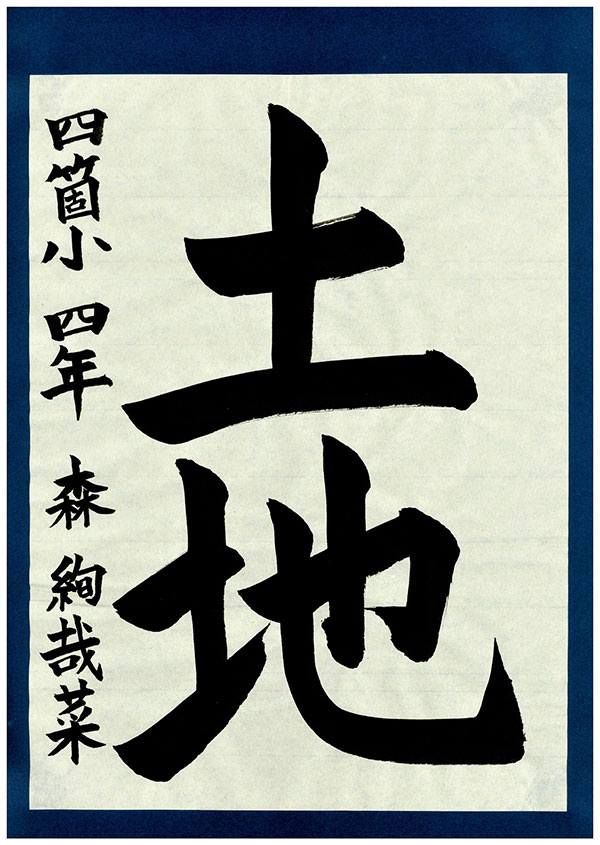 土地
四箇小 四年 森 絢哉菜